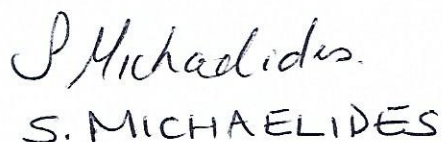 S Michaelides.
S. MICHAELIDES